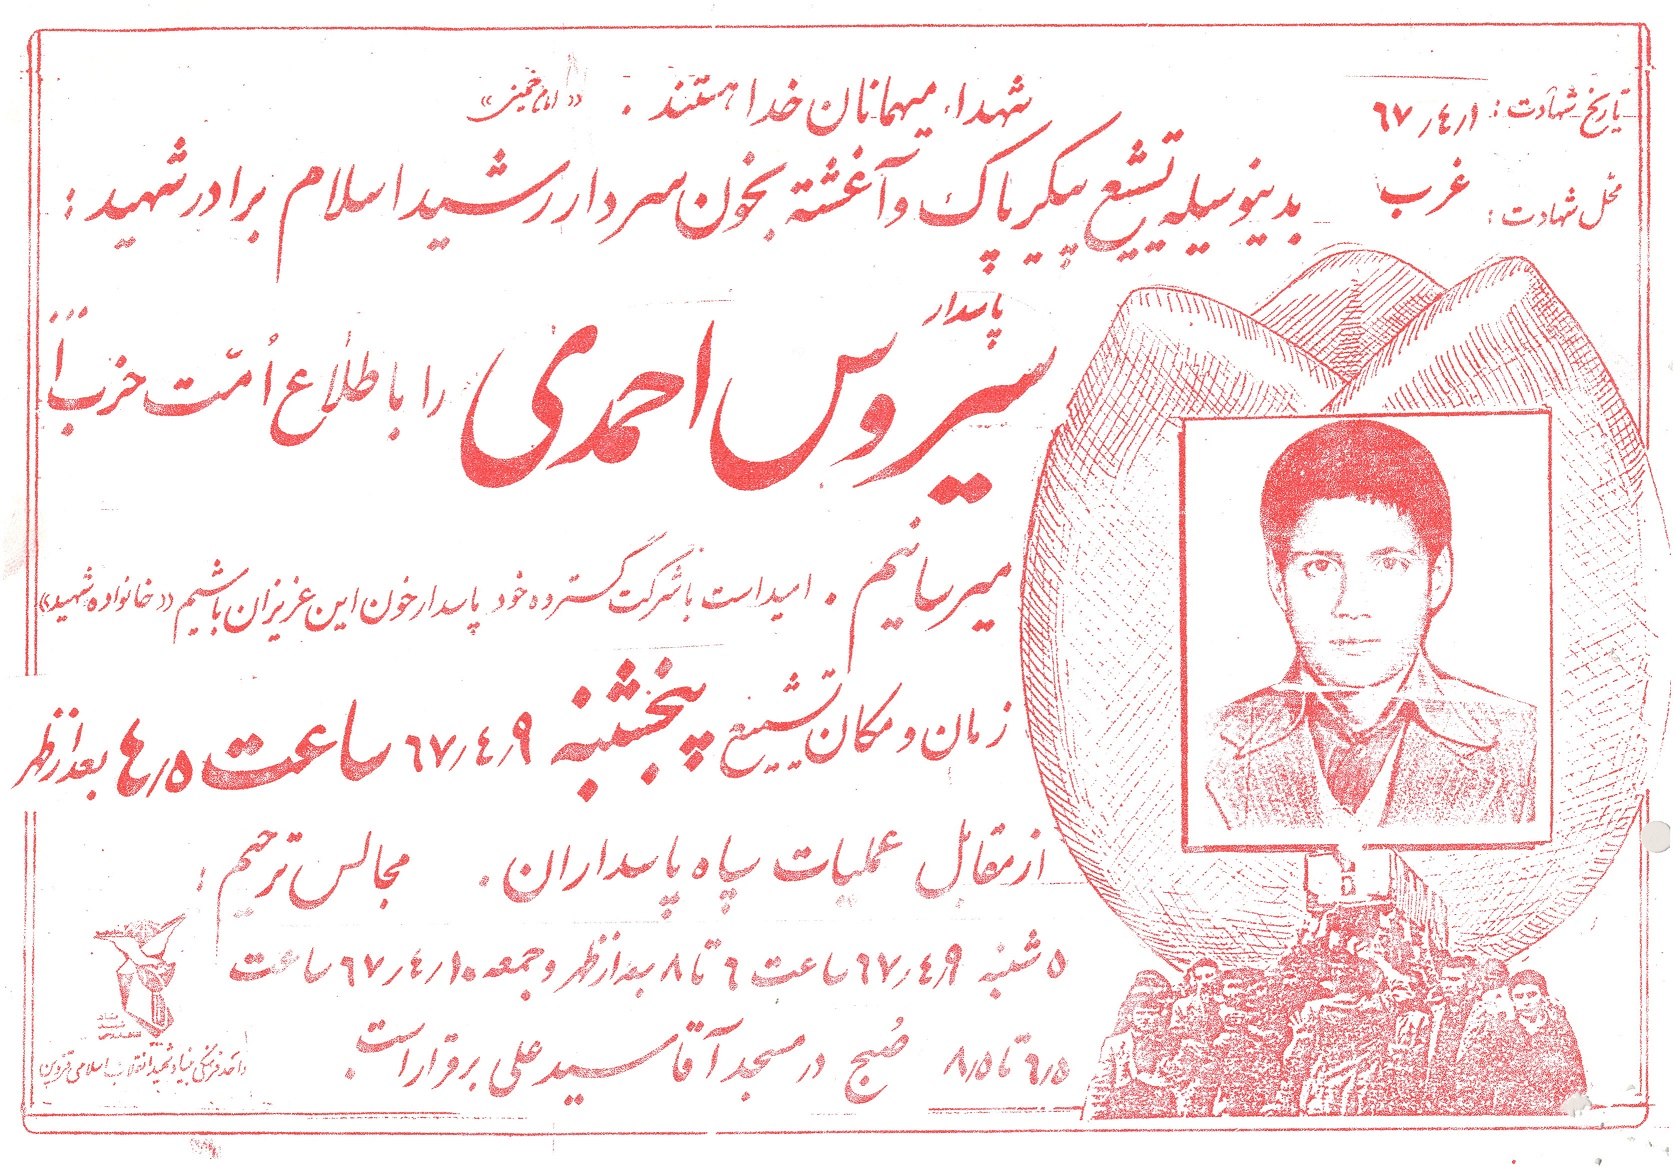 شهداء میهمانان خدا هستند . «امام خمینی»
تاریخ شهادت : ۶۷٫۴٫۱
محل شهادت : غرب
بدینوسیله تشییع پیکر پاک و آغشته بخون سردار رشید اسلام برادر شهید :
پاسدار
سیروس احمدی را باطلاع اُمّت حزب ا...
میرسانیم . امید است با شرکت گسترده خود پاسدار خون این عزیزان باشیم «خانواده شهید»
زمان و مکان تشییع پنجشنبه ۶۷٫۴٫۹ ساعت ۴٫۵ بعد از ظهر
از مقابل عملیات سپاه پاسداران . مجالس ترحیم :
۵ شنبه ۶۷٫۴٫۹ ساعت ۶ تا ۸ بعد از ظهر و جمعه ۶۷٫۴٫۱۰ ساعت
۶٫۵ تا ۸٫۵ صُبح در مسجد آقا سید علی برقرار است
بنیاد شهید
واحد فرهنگی بنیاد شهید انقلاب اسلامی قزوین